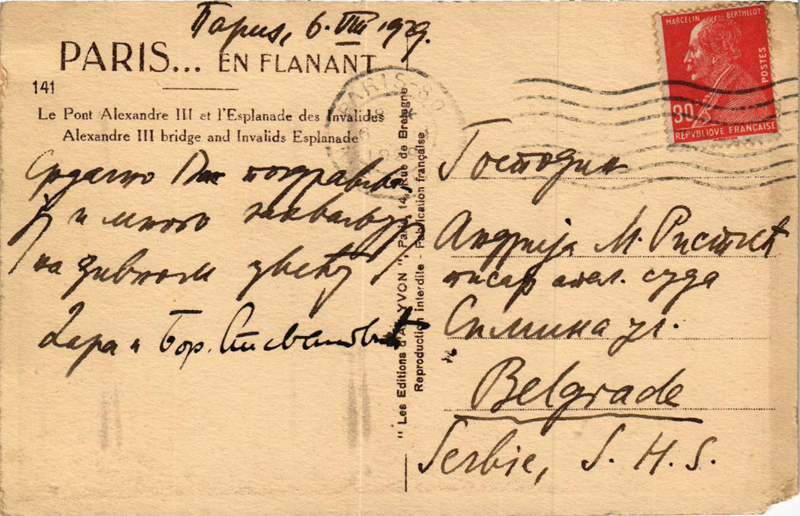 Париз, 6. VIII 1929.
PARIS... EN FLANANT
141
Le Pont Alexandre III et l'Esplanade des Invalides
Alexandre III bridge and Invalids Esplanade
Срдачно Вас поздрављају
и много захваљују
на дивном цвећу
Дара и Бор. Стевановић
" Les Editions d'Art YVON ", Paris, 14, Rue de Bretagne
Reproduction interdite - Fabrication française
PARIS
MARCELIN BERTHELOT
POSTES
90
REPVBLIQVE FRANÇAISE
Господин
Андрија М. Ристић
писар апел. суда
Симина ул.
Belgrade
Serbie, S. H. S.